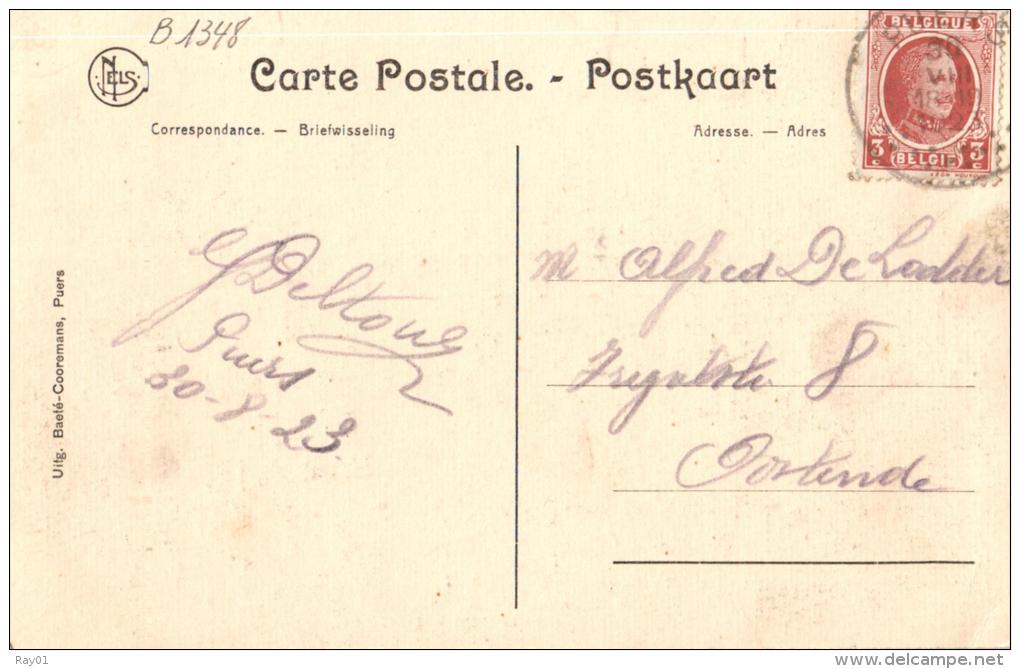 B 1348
NELS
Carte Postale. - Postkaart
Correspondance. — Briefwisseling
Adresse. — Adres
BELGIQUE
30
VIII
3c BELGIË 3c
Uitg. Baeté-Cooremans, Puers
Puers
30-8-23.
Mr Alfred De Ladder
8
Oostende
Ray01
www.delcampe.net